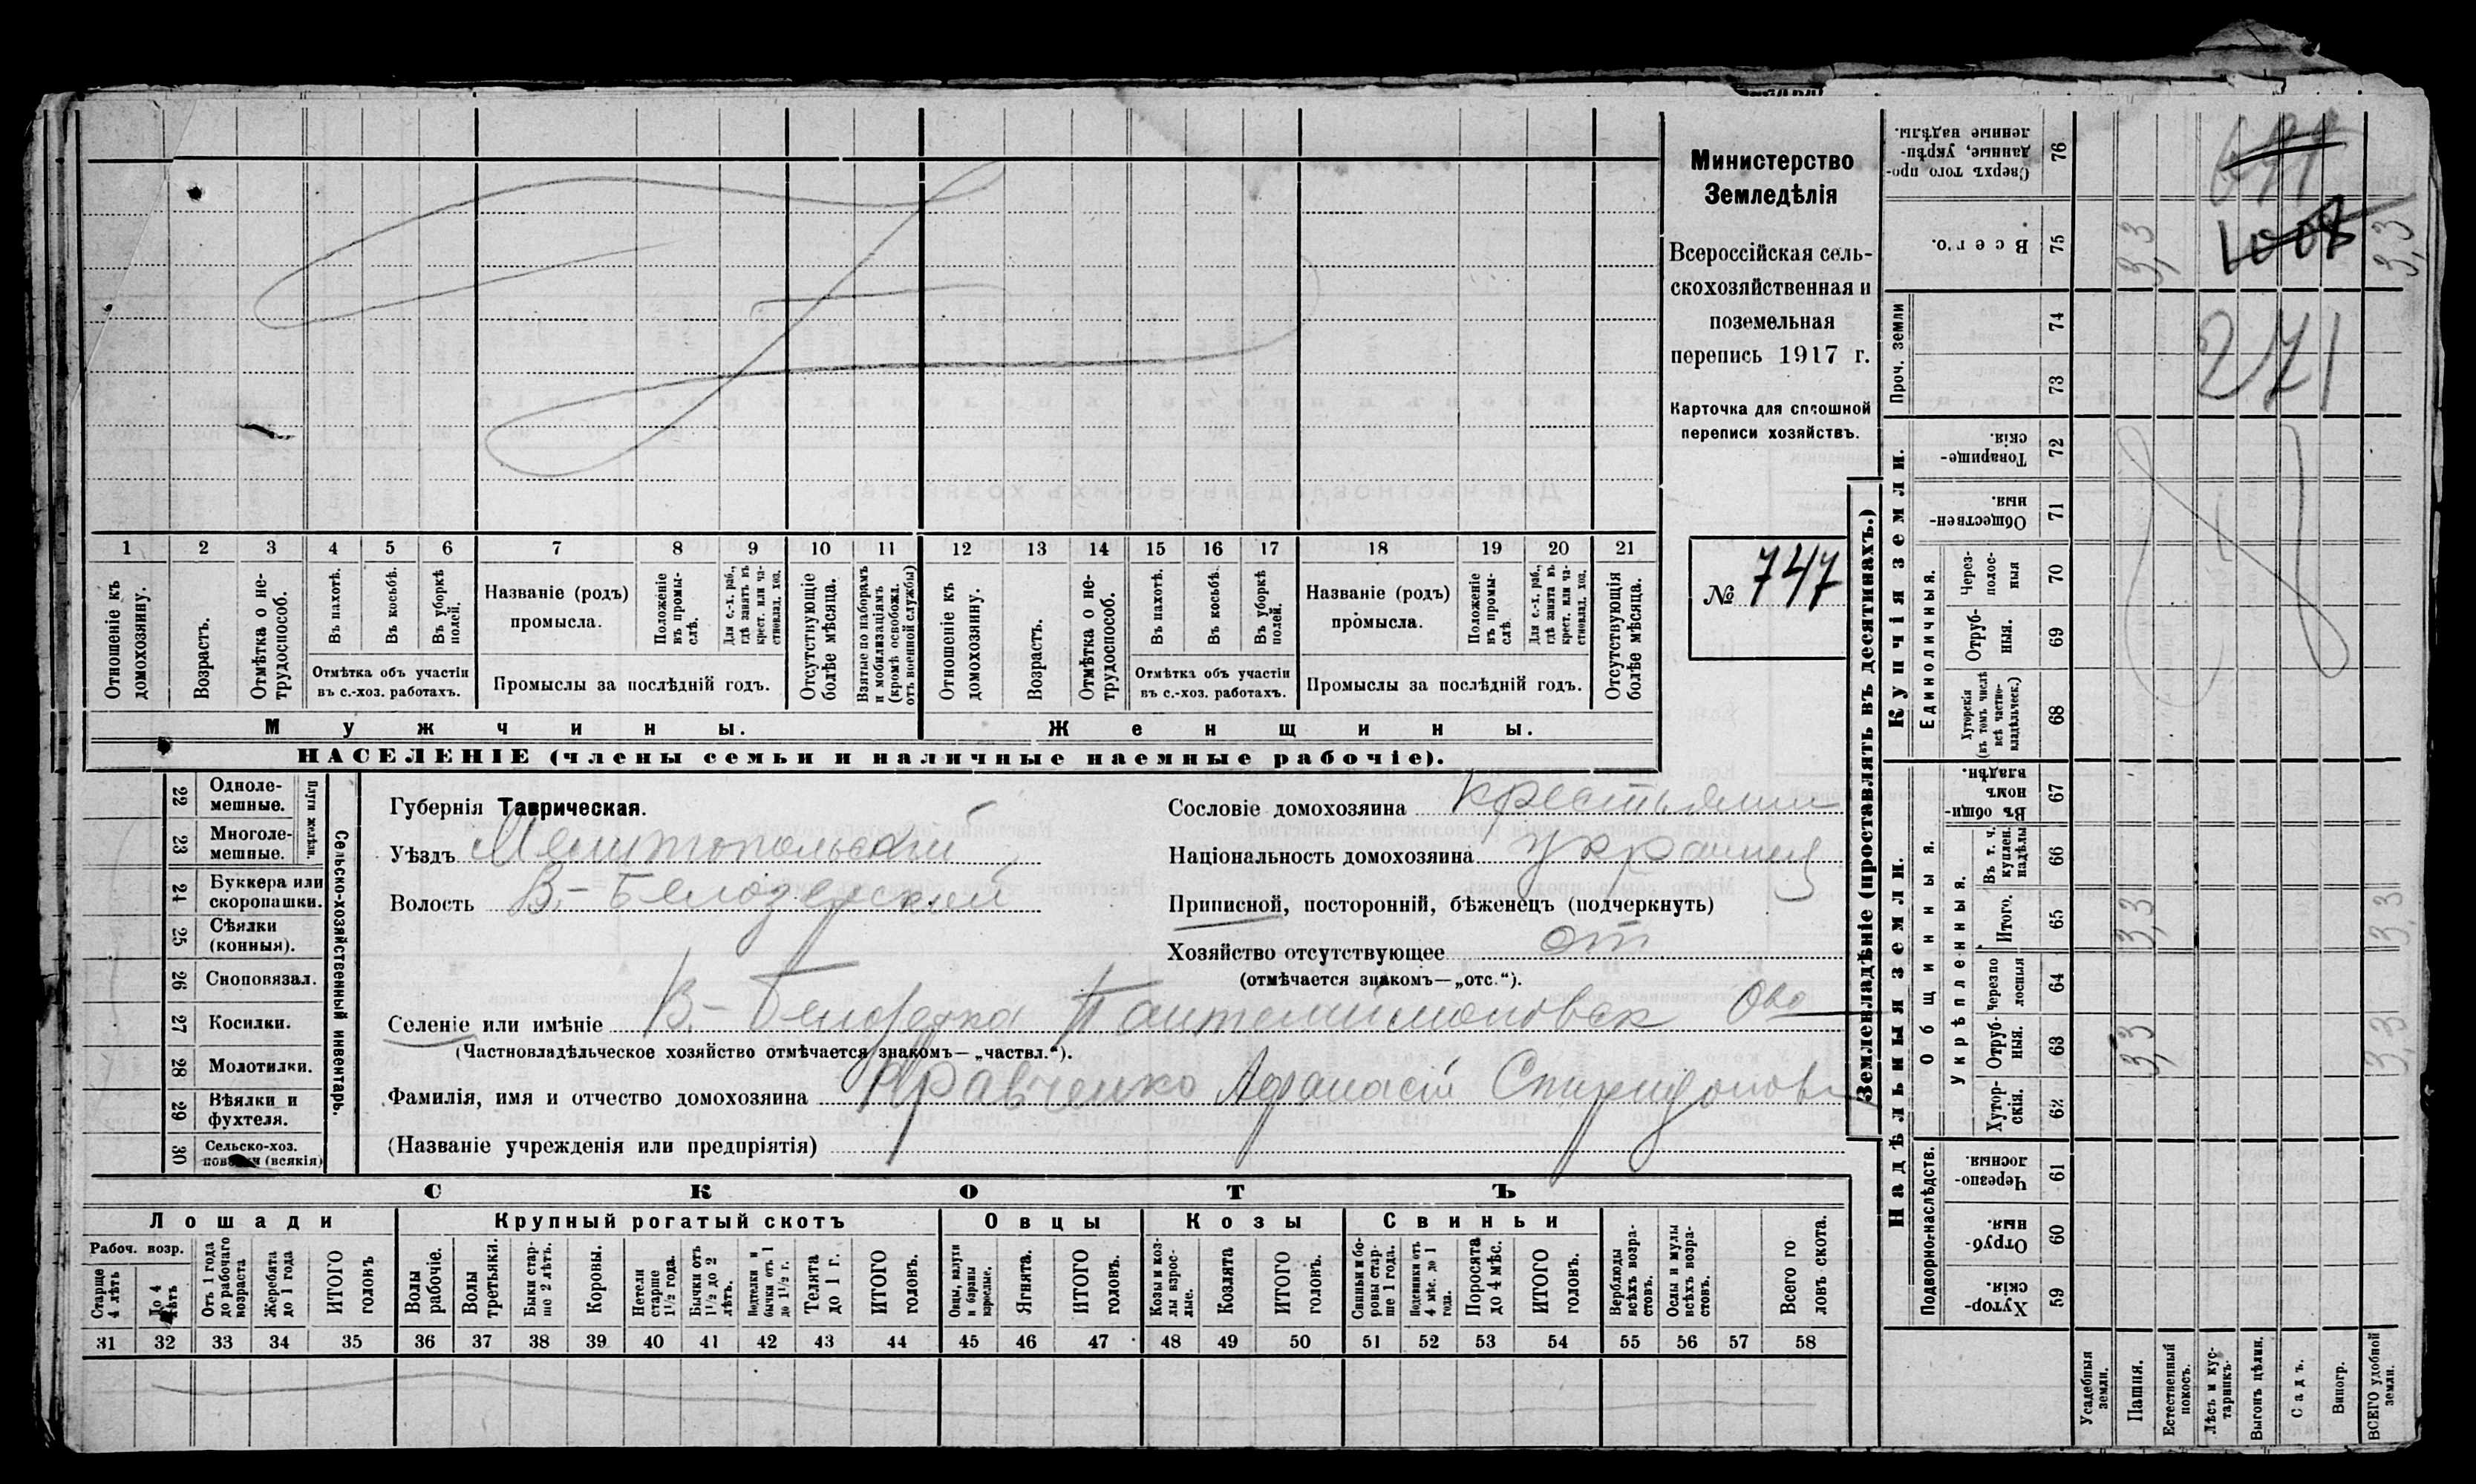 1 2 3 4 5 6 7 8 9 10 11 12 13 14 15 16 17 18 19 20 21
Отношеніе къ домохозяину.
Возрастъ.
Отмѣтка о не-
трудоспособ.
Въ пахотѣ.
Въ косьбѣ.
Въ уборкѣ
полей.
Отмѣтка объ участіи
въ с.-хоз. работахъ.
Названіе (родъ)
промысла.
Положеніе
въ промы-
слѣ.
Для с.-х. раб.,
гдѣ занятъ въ
крест. или ча-
стновлад. хоз.
Промыслы за послѣдній годъ.
Отсутствующіе
болѣе мѣсяца.
Взятые по наборамъ
и мобилизаціямъ
(кромѣ освобожд.
отъ военной службы)
Отношеніе къ
домохозяину.
Возрастъ.
Отмѣтка о не-
трудоспособ.
Въ пахотѣ.
Въ косьбѣ.
Въ уборкѣ
полей.
Отмѣтка объ участіи
въ с.-хоз. работахъ.
Названіе (родъ)
промысла.
Положеніе
въ промы-
слѣ.
Для с.-х. раб.,
гдѣ занята въ
крест. или ча-
стновлад. хоз.
Промыслы за послѣдній годъ.
Отсутствующія
болѣе мѣсяца.
Мужчины.
Женщины.
НАСЕЛЕНІЕ (члены семьи и наличные наемные рабочіе).
Министерство
Земледѣлія
Всероссійская сель-
скохозяйственная и
поземельная
перепись 1917 г.
Карточка для сплошной
переписи хозяйствъ.
№ 747
22 Одноле-
мешные.
23 Многоле-
мешные.
Плуги желѣзн.
24 Буккера или
скоропашки.
25 Сѣялки
(конныя).
26 Сноповязал.
27 Косилки.
28 Молотилки.
29 Вѣялки и
фухтеля.
30 Сельско-хоз.
повозки (всякія)
Сельско-хозяйственный инвентарь.
Губернія Таврическая.
Уѣздъ Мелитопольскій
Волость В.-Белозерской
Сословіе домохозяина крестьянин
Національность домохозяина украинец
Приписной, посторонній, бѣженецъ (подчеркнуть)
Хозяйство отсутствующее от
(отмѣчается знакомъ—„отс.“).
Селеніе или имѣніе В.-Белозерка Пантелаймоновск Ово
(Частновладѣльческое хозяйство отмѣчается знакомъ—„частвл.“).
Фамилія, имя и отчество домохозяина Кравченко Афанасій Спиридонов
(Названіе учрежденія или предпріятія)
СКОТЪ
Лошади
Рабоч. возр.
Старше
4 лѣтъ
До 4
лѣтъ
Отъ 1 года
до рабочаго
возраста
Жеребята
до 1 года
ИТОГО
головъ
Крупный рогатый скотъ
Волы
рабочіе.
Волы
третьяки.
Быки стар-
ше 2 лѣтъ.
Коровы.
Нетели
старше
1½ года.
Бычки отъ
1½ до 2
лѣтъ.
Нетелки и
бычки отъ 1
до 1½ г.
Телята
до 1 г.
ИТОГО
головъ.
Овцы
Овцы, валухи
и бараны
взрослые.
Ягнята.
ИТОГО
головъ.
Козы
Козы и коз-
лы взрос-
лые.
Козлята
ИТОГО
головъ.
Свиньи
Свиньи и бо-
ровы стар-
ше 1 года.
Подсвинки отъ
4 мѣс. до 1
года.
Поросята
до 4 мѣс.
ИТОГО
головъ.
Верблюды
всѣхъ возра-
стовъ.
Ослы и мулы
всѣхъ возра-
стовъ.
Всего го
ловъ скота.
31 32 33 34 35 36 37 38 39 40 41 42 43 44 45 46 47 48 49 50 51 52 53 54 55 56 57 58
Землевладѣніе (проставлять въ десятинахъ.)
Надѣльныя земли.
Купчія земли.
Проч. земли
Подворно-наслѣдств.
Общинныя.
Укрѣпленныя.
Единоличныя.
Сверхъ того про-
данные, укрѣп-
ленные надѣлы.
76
Всего.
75
3,3
3,3
74
73
271
Товарище-
скія.
72
Обществен-
ныя
71
Через-
полос-
ныя
70
Отруб-
ныя.
69
Хуторскія
(въ томъ числѣ
всѣ частно-
владѣльческ.)
68
Въ общин-
номъ
владѣн.
67
Въ т. ч.
куплен.
надѣлы
66
Итого.
65
3,3
3,3
Черезпо
лосныя
64
Отруб-
ныя.
63
3,3
3,3
Хутор-
скія.
62
Черезпо-
лосныя.
61
Отруб-
ныя.
60
Хутор-
скія
59
Усадебныя
земли.
Пашня.
Естественный
покосъ.
Лѣсъ и кус-
тарникъ.
Выгонъ цѣлин.
Садъ.
Виногр.
ВСЕГО удобной
земли.